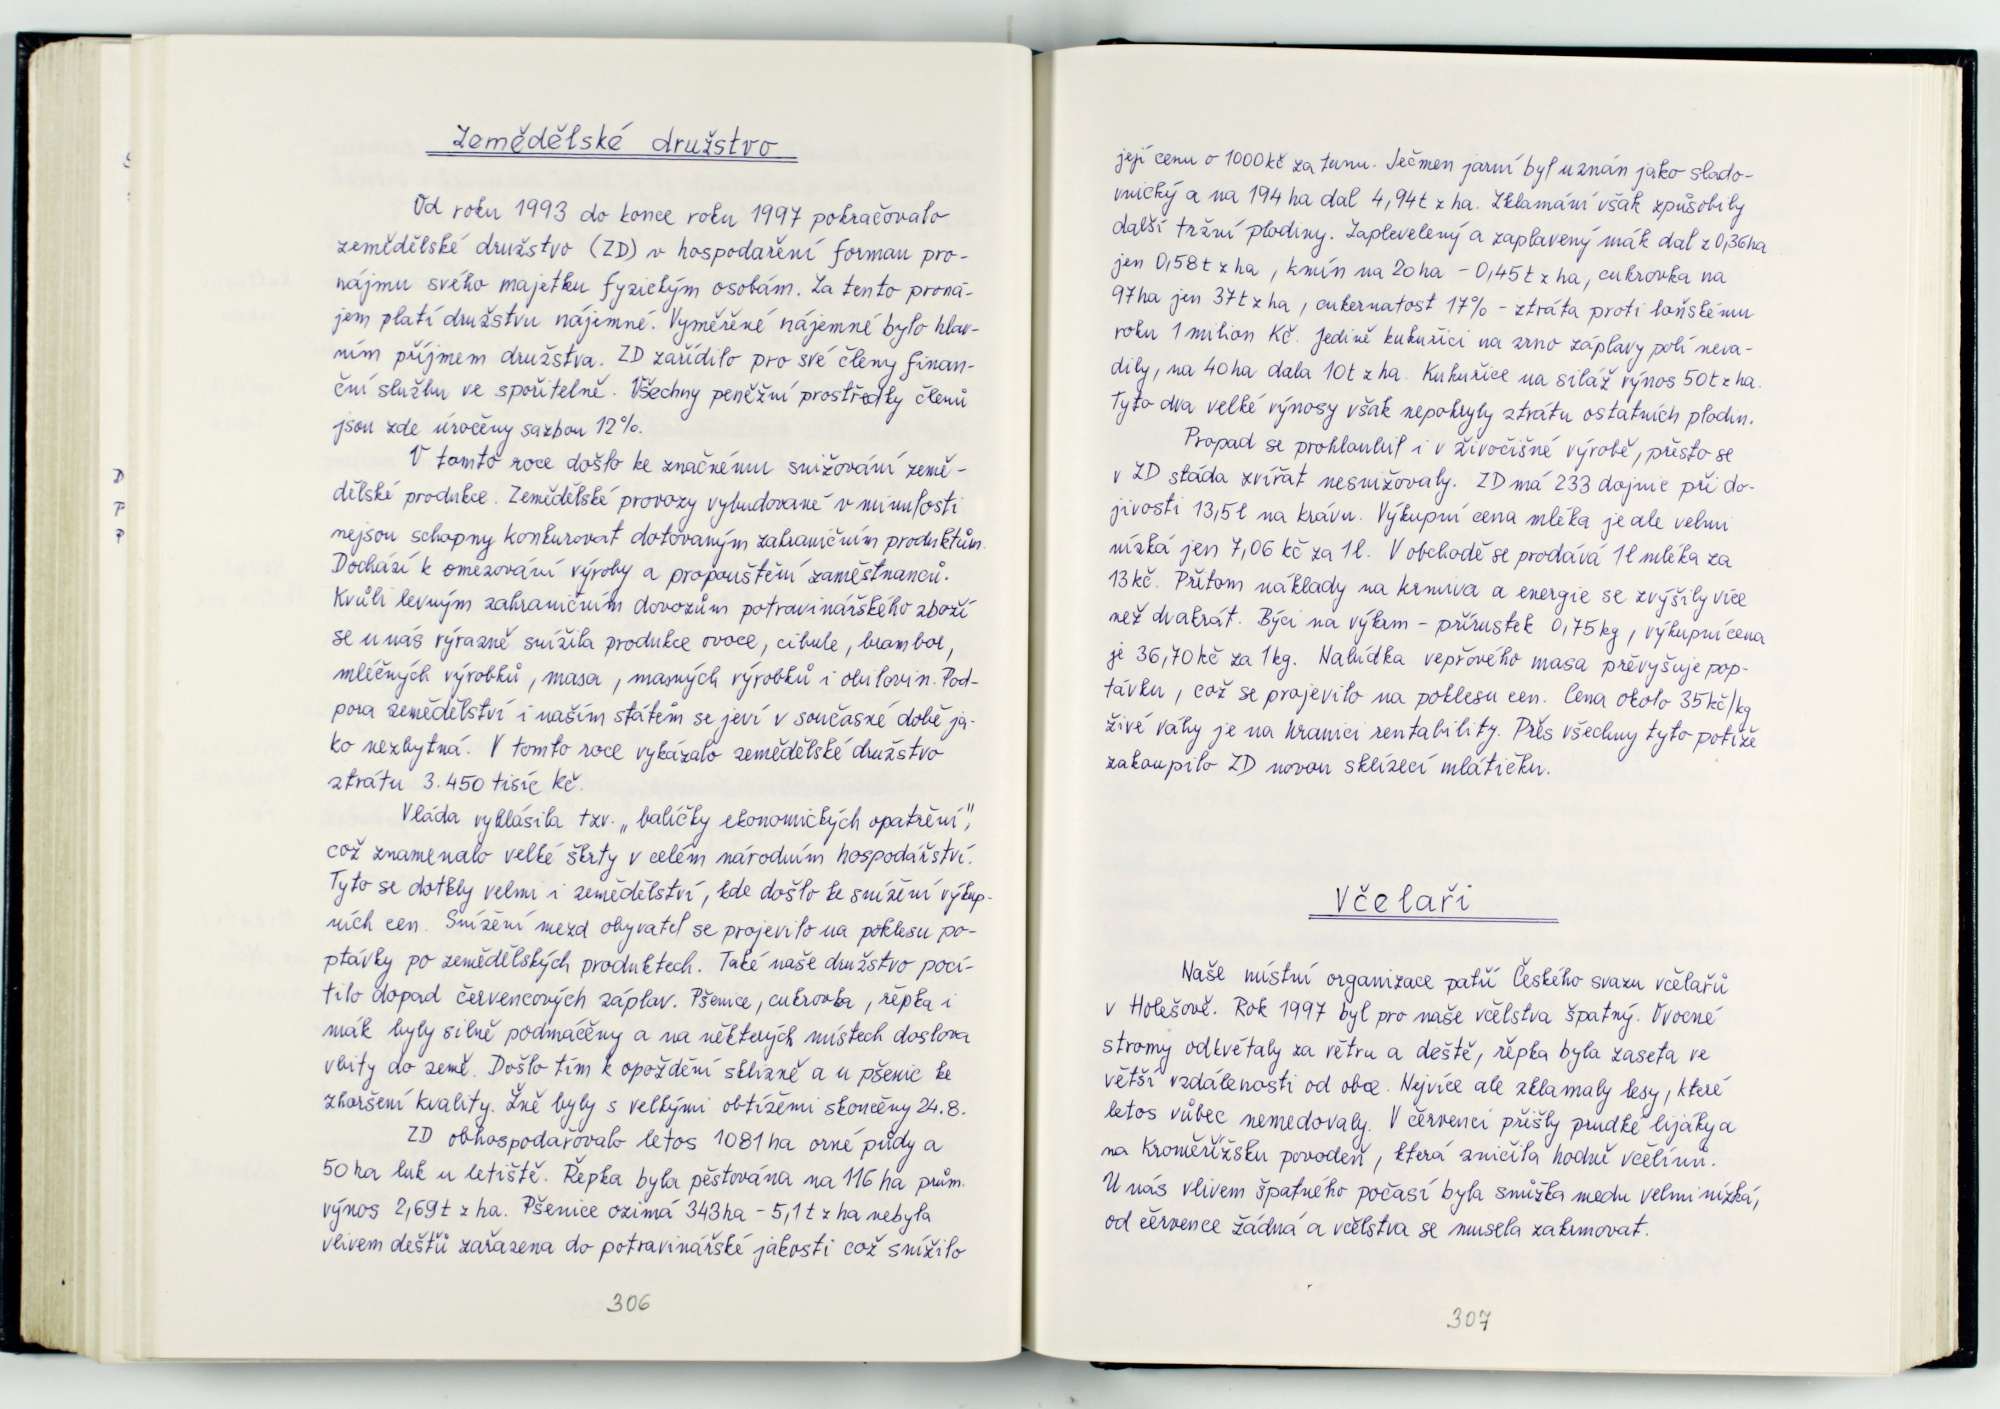 Zemědělské družstvo
Od roku 1993 do konce roku 1997 pokračovalo
zemědělské družstvo (ZD) v hospodaření formou pro-
nájmu svého majetku fyzickým osobám. Za tento proná-
jem platí družstvu nájemné. Vyměřené nájemné bylo hlav-
ním příjmem družstva. ZD zařídilo pro své členy finan-
ční službu ve spořitelně. Všechny peněžní prostředky členů
jsou zde úročeny sazbou 12%.
V tomto roce došlo ke značnému snižování země-
dělské produkce. Zemědělské provozy vybudované v minulosti
nejsou schopny konkurovat dotovaným zahraničním produktům.
Dochází k omezování výroby a propouštění zaměstnanců.
Kvůli levným zahraničním dovozům potravinářského zboží
se u nás výrazně snížila produkce ovoce, cibule, brambor,
mléčných výrobků, masa, masných výrobků i obilovin. Pod-
pora zemědělství i naším státem se jeví v současné době ja-
ko nezbytná. V tomto roce vykázalo zemědělské družstvo
ztrátu 3.450 tisíc Kč.
Vláda vyhlásila tzv. „balíčky ekonomických opatření",
což znamenalo velké škrty v celém národním hospodářství.
Tyto se dotkly velmi i zemědělství, kde došlo ke snížení výkup-
ních cen. Snížení mezd obyvatel se projevilo na poklesu po-
ptávky po zemědělských produktech. Také naše družstvo pocí-
tilo dopad červencových záplav. Pšenice, cukrovka, řepka i
mák byly silně podmáčeny a na některých místech doslova
vbity do země. Došlo tím k opoždění sklizně a u pšenic ke
zhoršení kvality. Žně byly s velkými obtížemi skončeny 24.8.
ZD obhospodařovalo letos 1081 ha orné půdy a
50 ha luk u letiště. Řepka byla pěstována na 116 ha prům.
výnos 2,69 t z ha. Pšenice ozimá 343 ha - 5,1 t z ha nebyla
vlivem dešťů zařazena do potravinářské jakosti což snížilo
306
její cenu o 1000 kč za tunu. Ječmen jarní byl uznán jako slado-
vnický a na 194 ha dal 4,94 t z ha. Zklamání však způsobily
další tržní plodiny. Zaplevelený a zaplavený mák dal z 0,36 ha
jen 0,58 t z ha, kmín na 20 ha - 0,45 t z ha, cukrovka na
97 ha jen 37 t z ha, cukernatost 17% - ztráta proti loňskému
roku 1 milion Kč. Jedině kukuřici na zrno záplavy polí neva-
dily, na 40 ha dala 10 t z ha. Kukuřice na siláž výnos 50 t z ha.
Tyto dva velké výnosy však nepokryly ztrátu ostatních plodin.
Propad se prohloubil i v živočišné výrobě, přesto se
v ZD stáda zvířat nesnižovaly. ZD má 233 dojnic při do-
jivosti 13,5 l na krávu. Výkupní cena mléka je ale velmi
nízká jen 7,06 kč za 1 l. V obchodě se prodává 1 l mléka za
13 kč. Přitom náklady na krmiva a energie se zvýšily více
než dvakrát. Býci na výkrm - přírustek 0,75 kg, výkupní cena
je 36,70 kč za 1 kg. Nabídka vepřového masa převyšuje pop-
távku, což se projevilo na poklesu cen. Cena okolo 35 kč/kg
živé váhy je na hranici rentability. Přes všechny tyto potíže
zakoupilo ZD novou sklízecí mlátičku.
Včelaři
Naše místní organizace patří Českého svazu včelařů
v Holešově. Rok 1997 byl pro naše včelstva špatný. Ovocné
stromy odkvétaly za větru a deště, řepka byla zaseta ve
větší vzdálenosti od obce. Nejvíce ale zklamaly lesy, které
letos vůbec nemedovaly. V červenci přišly prudké lijáky a
na Kroměřížsku povodeň, která zničila hodně včelínů.
U nás vlivem špatného počasí byla snůška medu velmi nízká,
od července žádná a včelstva se musela zakrmovat.
307